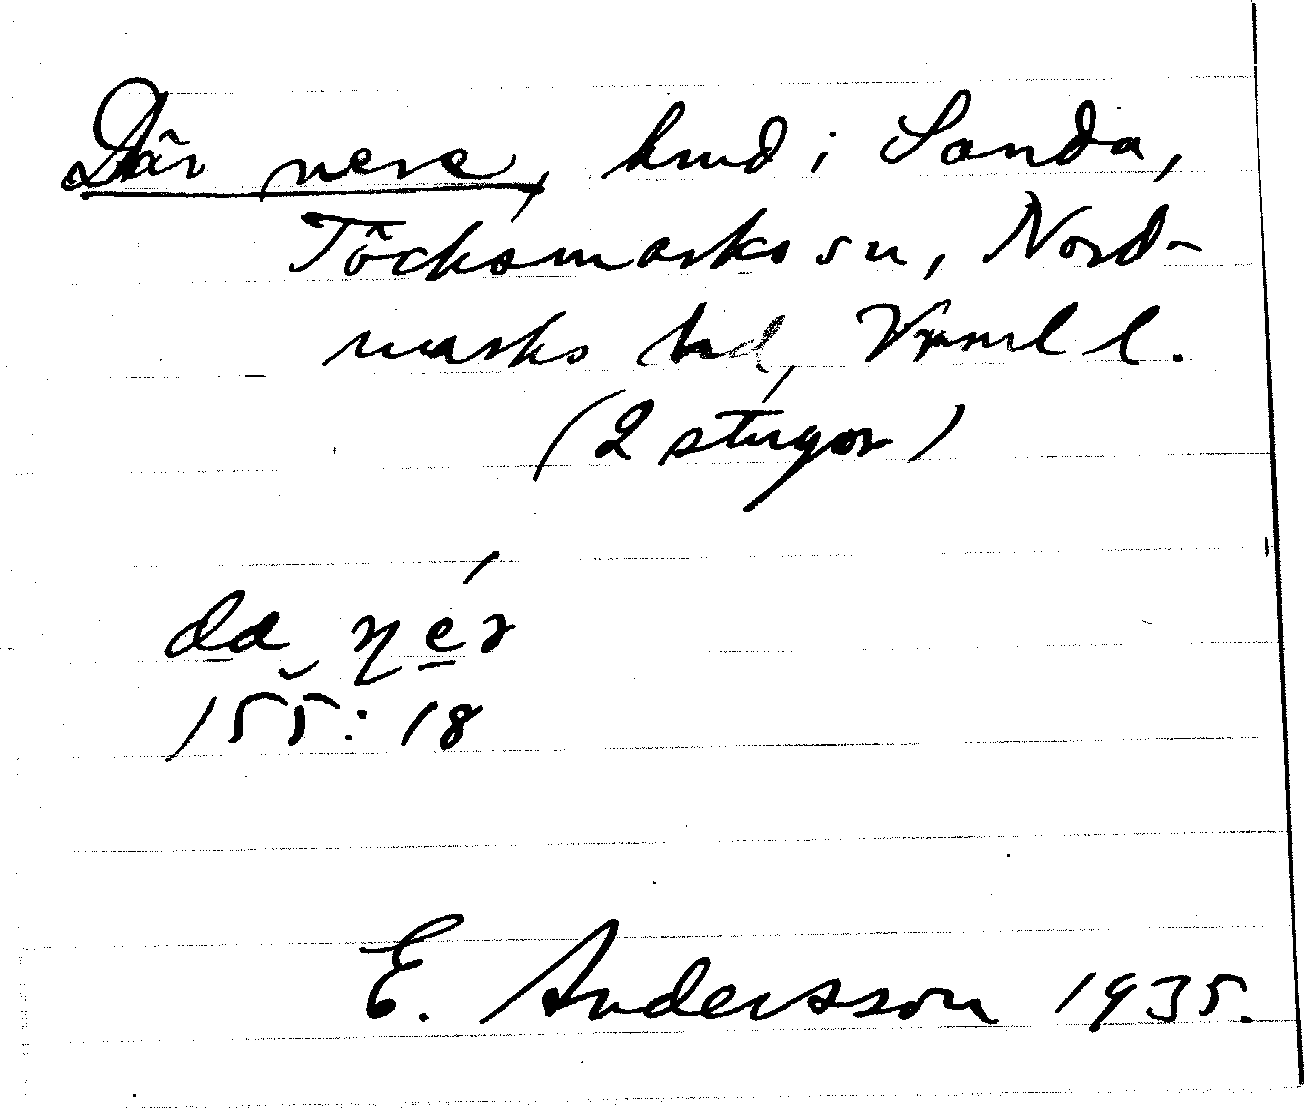 Där nere, hmd i Sanda,
Töcksmarks sn, Nord-
marks hd, Vrml l.
(2 stugor)
da nér
155:18
E. Andersson 1935.